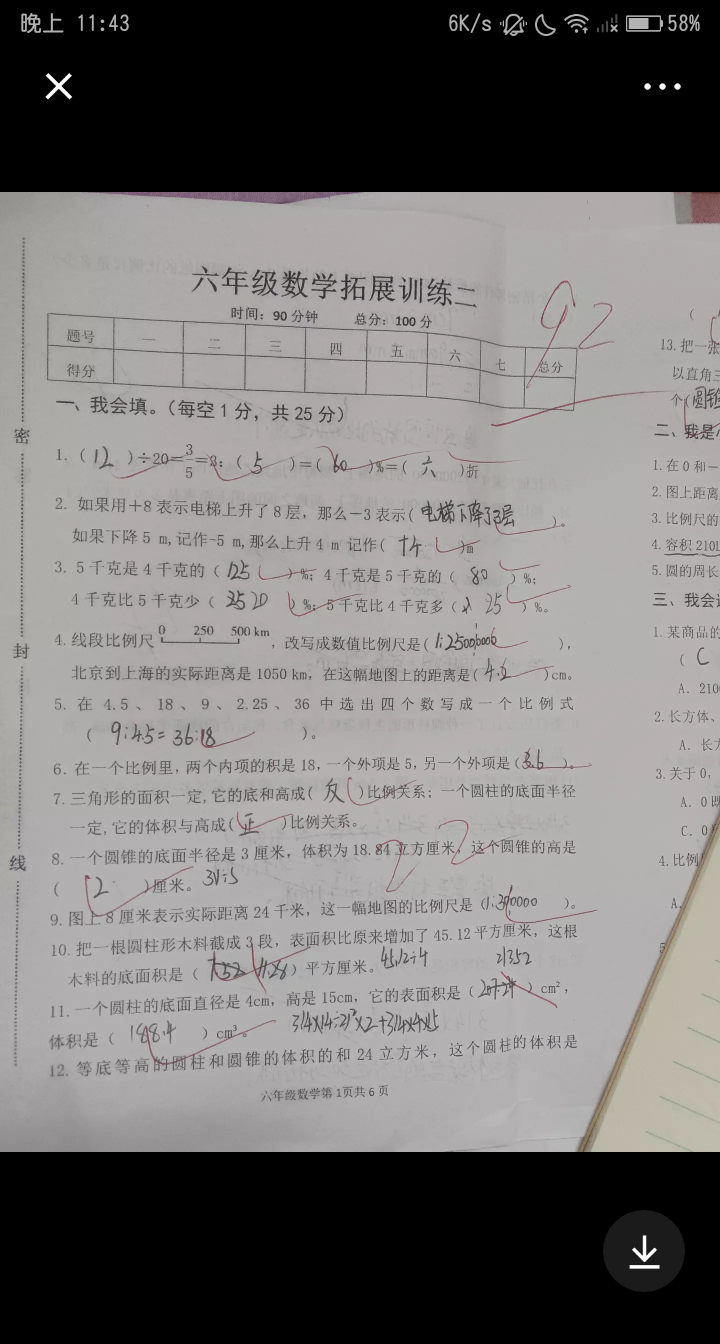 晚上 11:43
6K/s 58%
六年级数学拓展训练二
92
时间：90分钟 总分：100分
题号 一 二 三 四 五 六 七 总分
得分
一、我会填。（每空1分，共25分）
1.（12）÷20=3/5=3：（5）=（60）%=（六）折
2. 如果用+8表示电梯上升了8层，那么-3表示（电梯下降了3层）。
如果下降5 m,记作-5 m,那么上升4 m 记作（+4）m
3. 5千克是4千克的（125）%；4千克是5千克的（80）%；
4千克比5千克少（20）%；5千克比4千克多（25）%。
4. 线段比例尺 0 250 500 km，改写成数值比例尺是（1:25000000），
北京到上海的实际距离是1050 km，在这幅地图上的距离是（4.2）cm。
5. 在 4.5、18、9、2.25、36 中选出四个数写成一个比例式
（9:4.5=36:18）。
6. 在一个比例里，两个内项的积是18，一个外项是5，另一个外项是（3.6）。
7. 三角形的面积一定,它的底和高成（反）比例关系；一个圆柱的底面半径
一定,它的体积与高成（正）比例关系。
8. 一个圆锥的底面半径是3厘米，体积为18.84立方厘米，这个圆锥的高是
（2）厘米。
9. 图上8厘米表示实际距离24千米，这一幅地图的比例尺是（1:300000）。
10. 把一根圆柱形木料截成3段，表面积比原来增加了45.12平方厘米，这根
木料的底面积是（11.28）平方厘米。 45.12÷4 213.52
11. 一个圆柱的底面直径是4cm，高是15cm，它的表面积是（）cm²，
体积是（188.4）cm³。
12. 等底等高的圆柱和圆锥的体积的和24立方米，这个圆柱的体积是
六年级数学第1页共6页
密
封
线
13.把一张
以直角三
个（圆锥
二、我是
1.在0和-
2.图上距离
3.比例尺的
4.容积210L
5.圆的周长
三、我会
1.某商品的
（C
A. 210
2.长方体、
A. 长
3.关于0，
A. 0既
C. 0
4.比例
A.